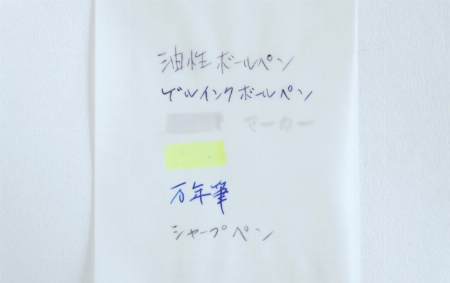 油性ボールペン
ゲルインクボールペン
マーカー
万年筆
シャープペン